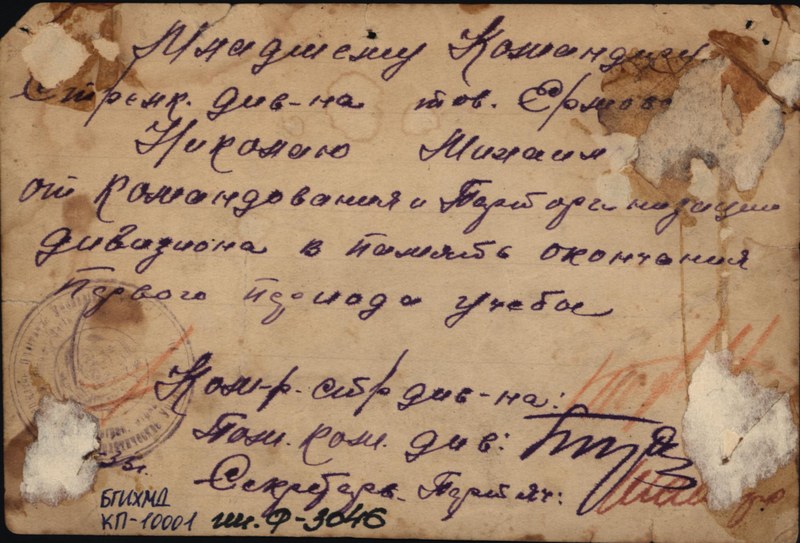 Младшему Командиру
Стрелк. див-на тов. Ермо
Николаю Михаил
от командования и Парторганизации
дивизиона в память окончания
Первого периода учебы
Ком-р. стр див-на:
Пом. ком. див:
Секретарь Парт яч:
БГИХМД
КП-10001 ин. Ф-3046